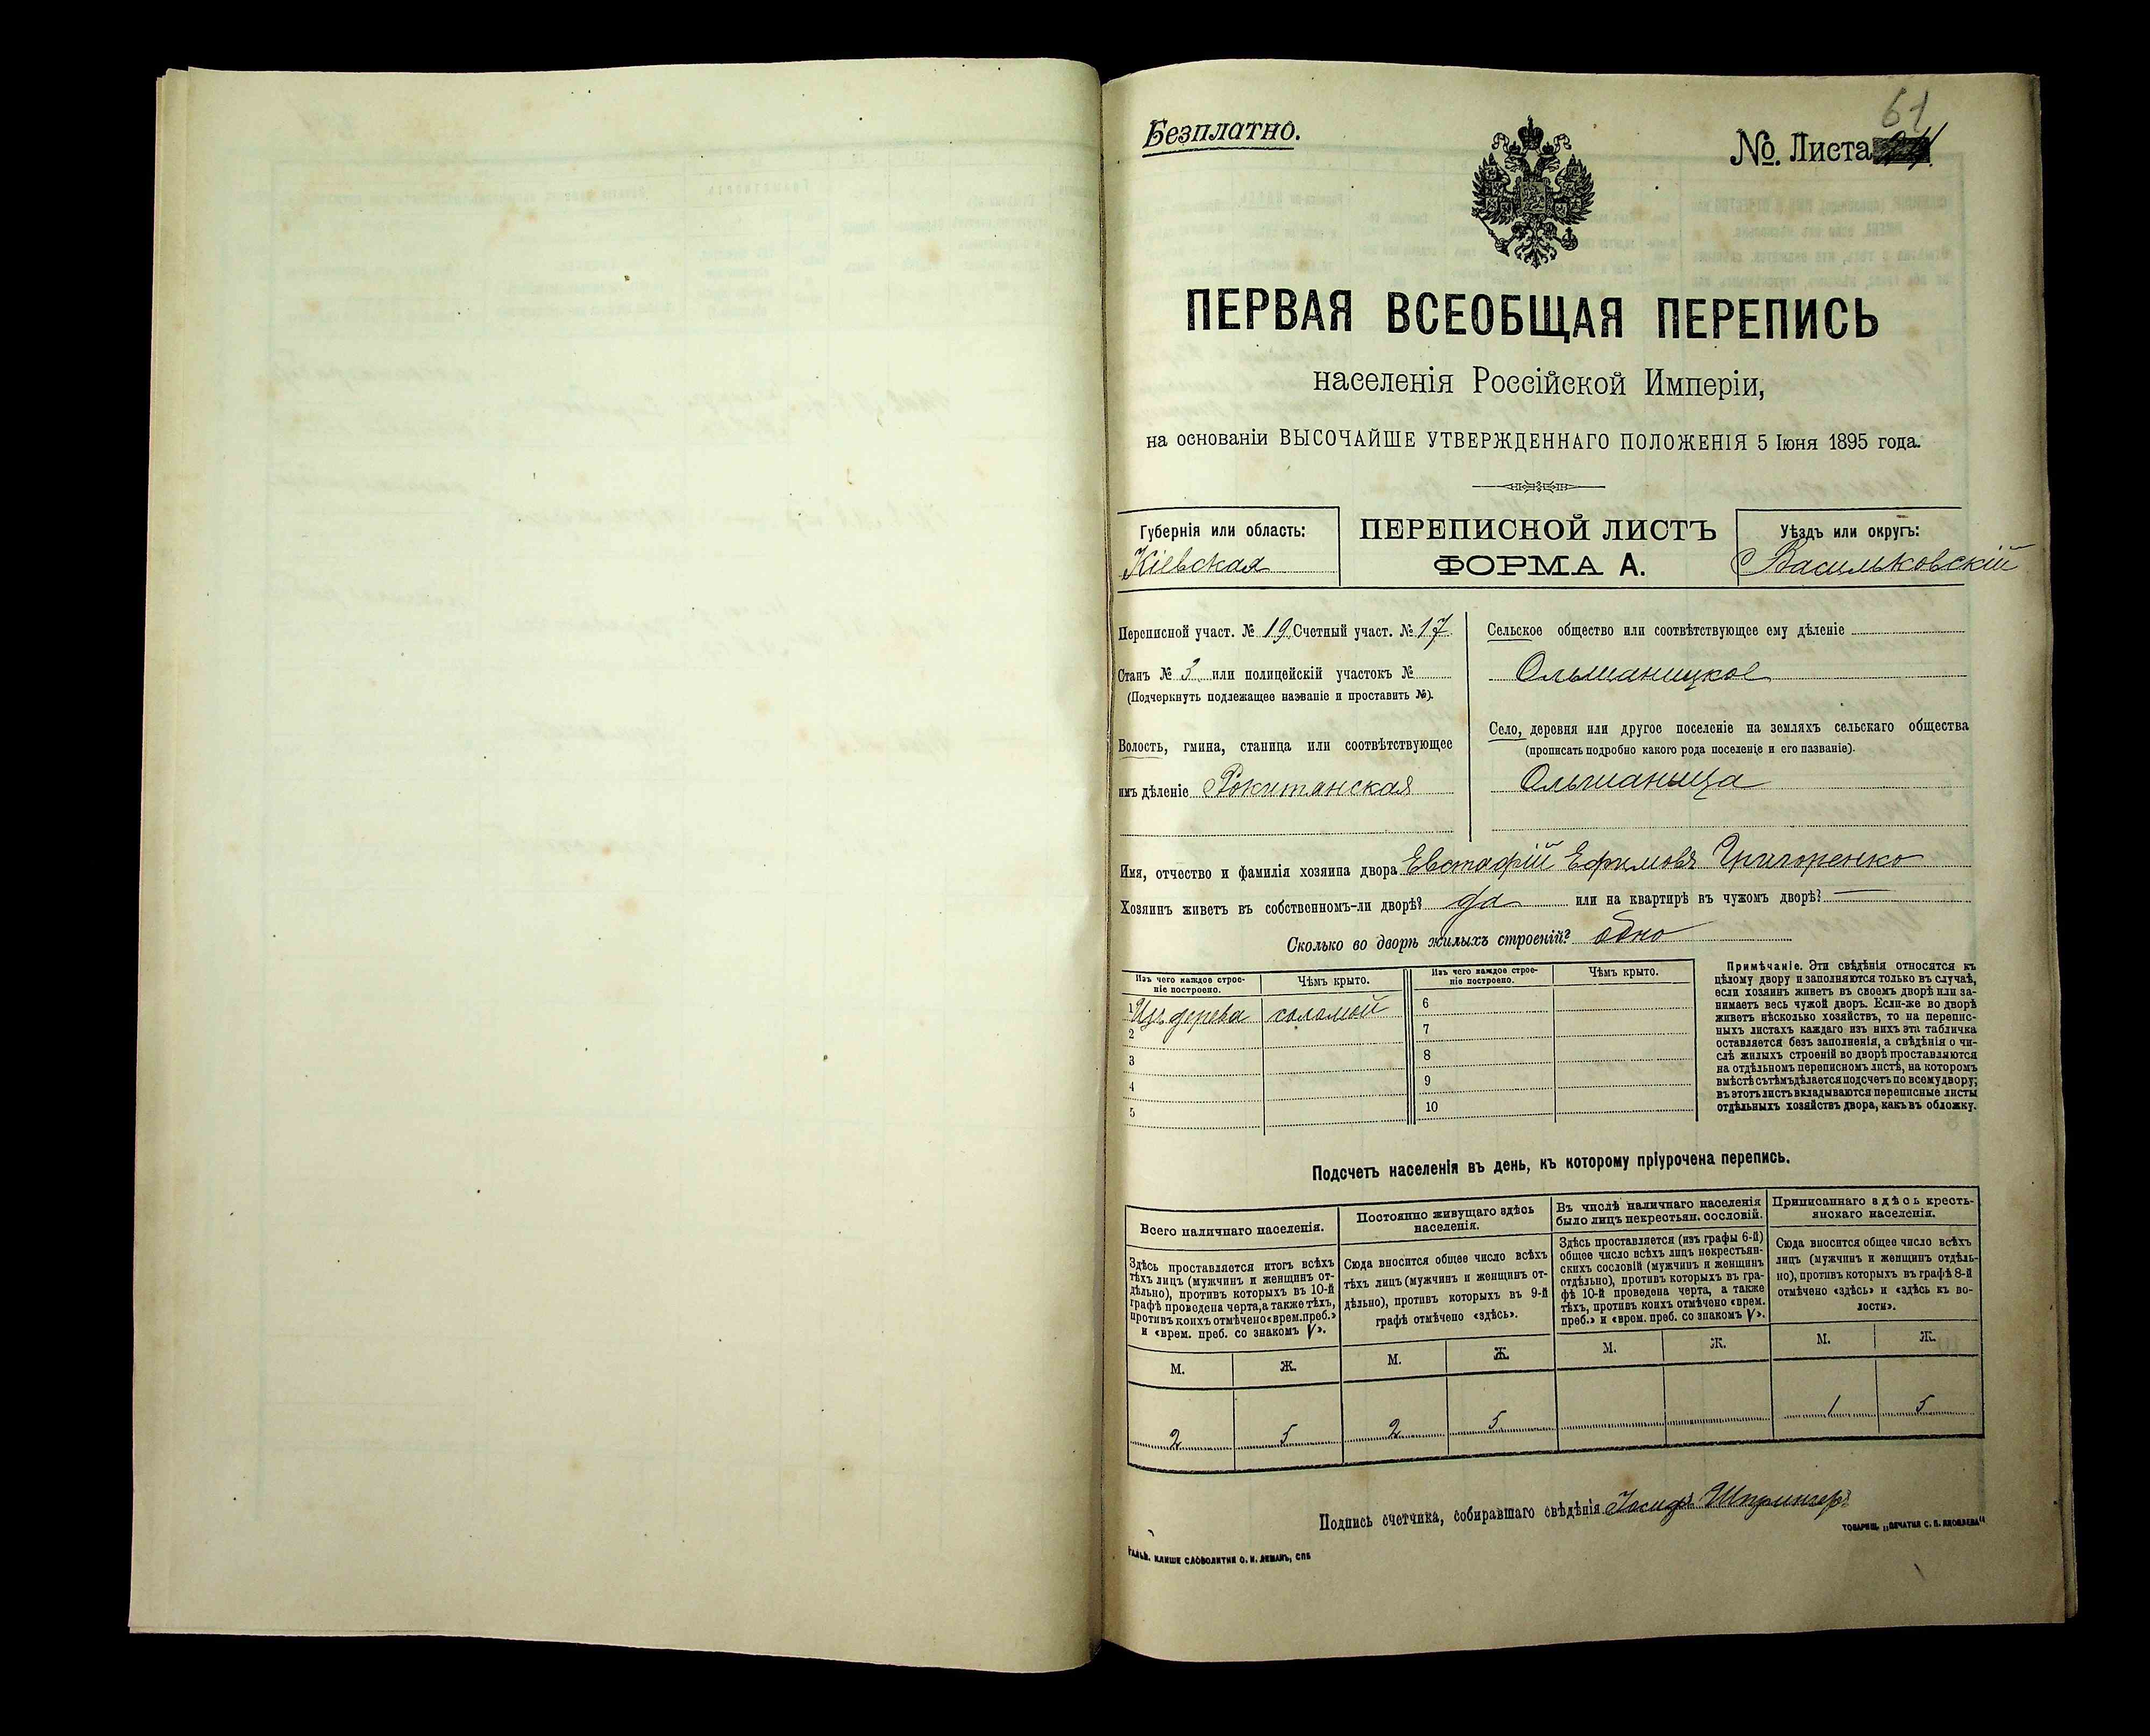 61
Безплатно.
№. Листа
ПЕРВАЯ ВСЕОБЩАЯ ПЕРЕПИСЬ
населенія Россійской Имперіи,
на основаніи ВЫСОЧАЙШЕ УТВЕРЖДЕННАГО ПОЛОЖЕНІЯ 5 Іюня 1895 года.
Губернія или область:
Кіевская
ПЕРЕПИСНОЙ ЛИСТЪ
ФОРМА А.
Уѣздъ или округъ:
Васильковскій
Переписной участ. № 19 Счетный участ. № 17
Станъ № 3 или полицейскій участокъ №
(Подчеркнуть подлежащее названіе и проставить №).
Волость, гмина, станица или соотвѣтствующее
имъ дѣленіе Рокитанская
Сельское общество или соотвѣтствующее ему дѣленіе
Ольшаницкое
Село, деревня или другое поселеніе на земляхъ сельскаго общества
(прописать подробно какого рода поселеніе и его названіе).
Ольшаница
Имя, отчество и фамилія хозяина двора Евстафій Ефимовъ Григоренко
Хозяинъ живетъ въ собственномъ-ли дворѣ? да или на квартирѣ въ чужомъ дворѣ? —
Сколько во дворѣ жилыхъ строеній? одно
Изъ чего каждое строе-
ніе построено.
Чѣмъ крыто.
Изъ чего каждое строе-
ніе построено.
Чѣмъ крыто.
1 Изъ дерева соломой 6
2 7
3 8
4 9
5 10
Примѣчаніе. Эти свѣдѣнія относятся къ
цѣлому двору и заполняются только въ случаѣ,
если хозяинъ живетъ въ своемъ дворѣ или за-
нимаетъ весь чужой дворъ. Если-же во дворѣ
живетъ нѣсколько хозяйствъ, то на перепис-
ныхъ листахъ каждаго изъ нихъ эта табличка
оставляется безъ заполненія, а свѣдѣнія о чи-
слѣ жилыхъ строеній во дворѣ проставляются
на отдѣльномъ переписномъ листѣ, на которомъ
вмѣстѣ съ тѣмъ дѣлается подсчетъ по всему двору;
въ этотъ листъ вкладываются переписные листы
отдѣльныхъ хозяйствъ двора, какъ въ обложку.
Подсчетъ населенія въ день, къ которому пріурочена перепись.
Всего наличнаго населенія.
Здѣсь проставляется итогъ всѣхъ
тѣхъ лицъ (мужчинъ и женщинъ от-
дѣльно), противъ которыхъ въ 10-й
графѣ проведена черта, а также тѣхъ,
противъ коихъ отмѣчено «врем. преб.»
и «врем. преб. со знакомъ V».
Постоянно живущаго здѣсь
населенія.
Сюда вносится общее число всѣхъ
тѣхъ лицъ (мужчинъ и женщинъ от-
дѣльно), противъ которыхъ въ 9-й
графѣ отмѣчено «здѣсь».
Въ числѣ наличнаго населенія
было лицъ некрестьян. сословій.
Здѣсь проставляется (изъ графы 6-й)
общее число всѣхъ лицъ некрестьян-
скихъ сословій (мужчинъ и женщинъ
отдѣльно), противъ которыхъ въ гра-
фѣ 10-й проведена черта, а также
тѣхъ, противъ коихъ отмѣчено «врем.
преб.» и «врем. преб. со знакомъ V».
Приписаннаго здѣсь кресть-
янскаго населенія.
Сюда вносится общее число всѣхъ
лицъ (мужчинъ и женщинъ отдѣль-
но), противъ которыхъ въ графѣ 8-й
отмѣчено «здѣсь» и «здѣсь къ во-
лости».
М. Ж. М. Ж. М. Ж. М. Ж.
2 5 2 5 1 5
Подпись счетчика, собиравшаго свѣдѣнія
ТОВАРИЩ. „ПЕЧАТНЯ С. П. ЯКОВЛЕВА“
ГАЛЬВ. КЛИШЕ СЛОВОЛИТНИ О. И. ЛЕМАНЪ, СПБ